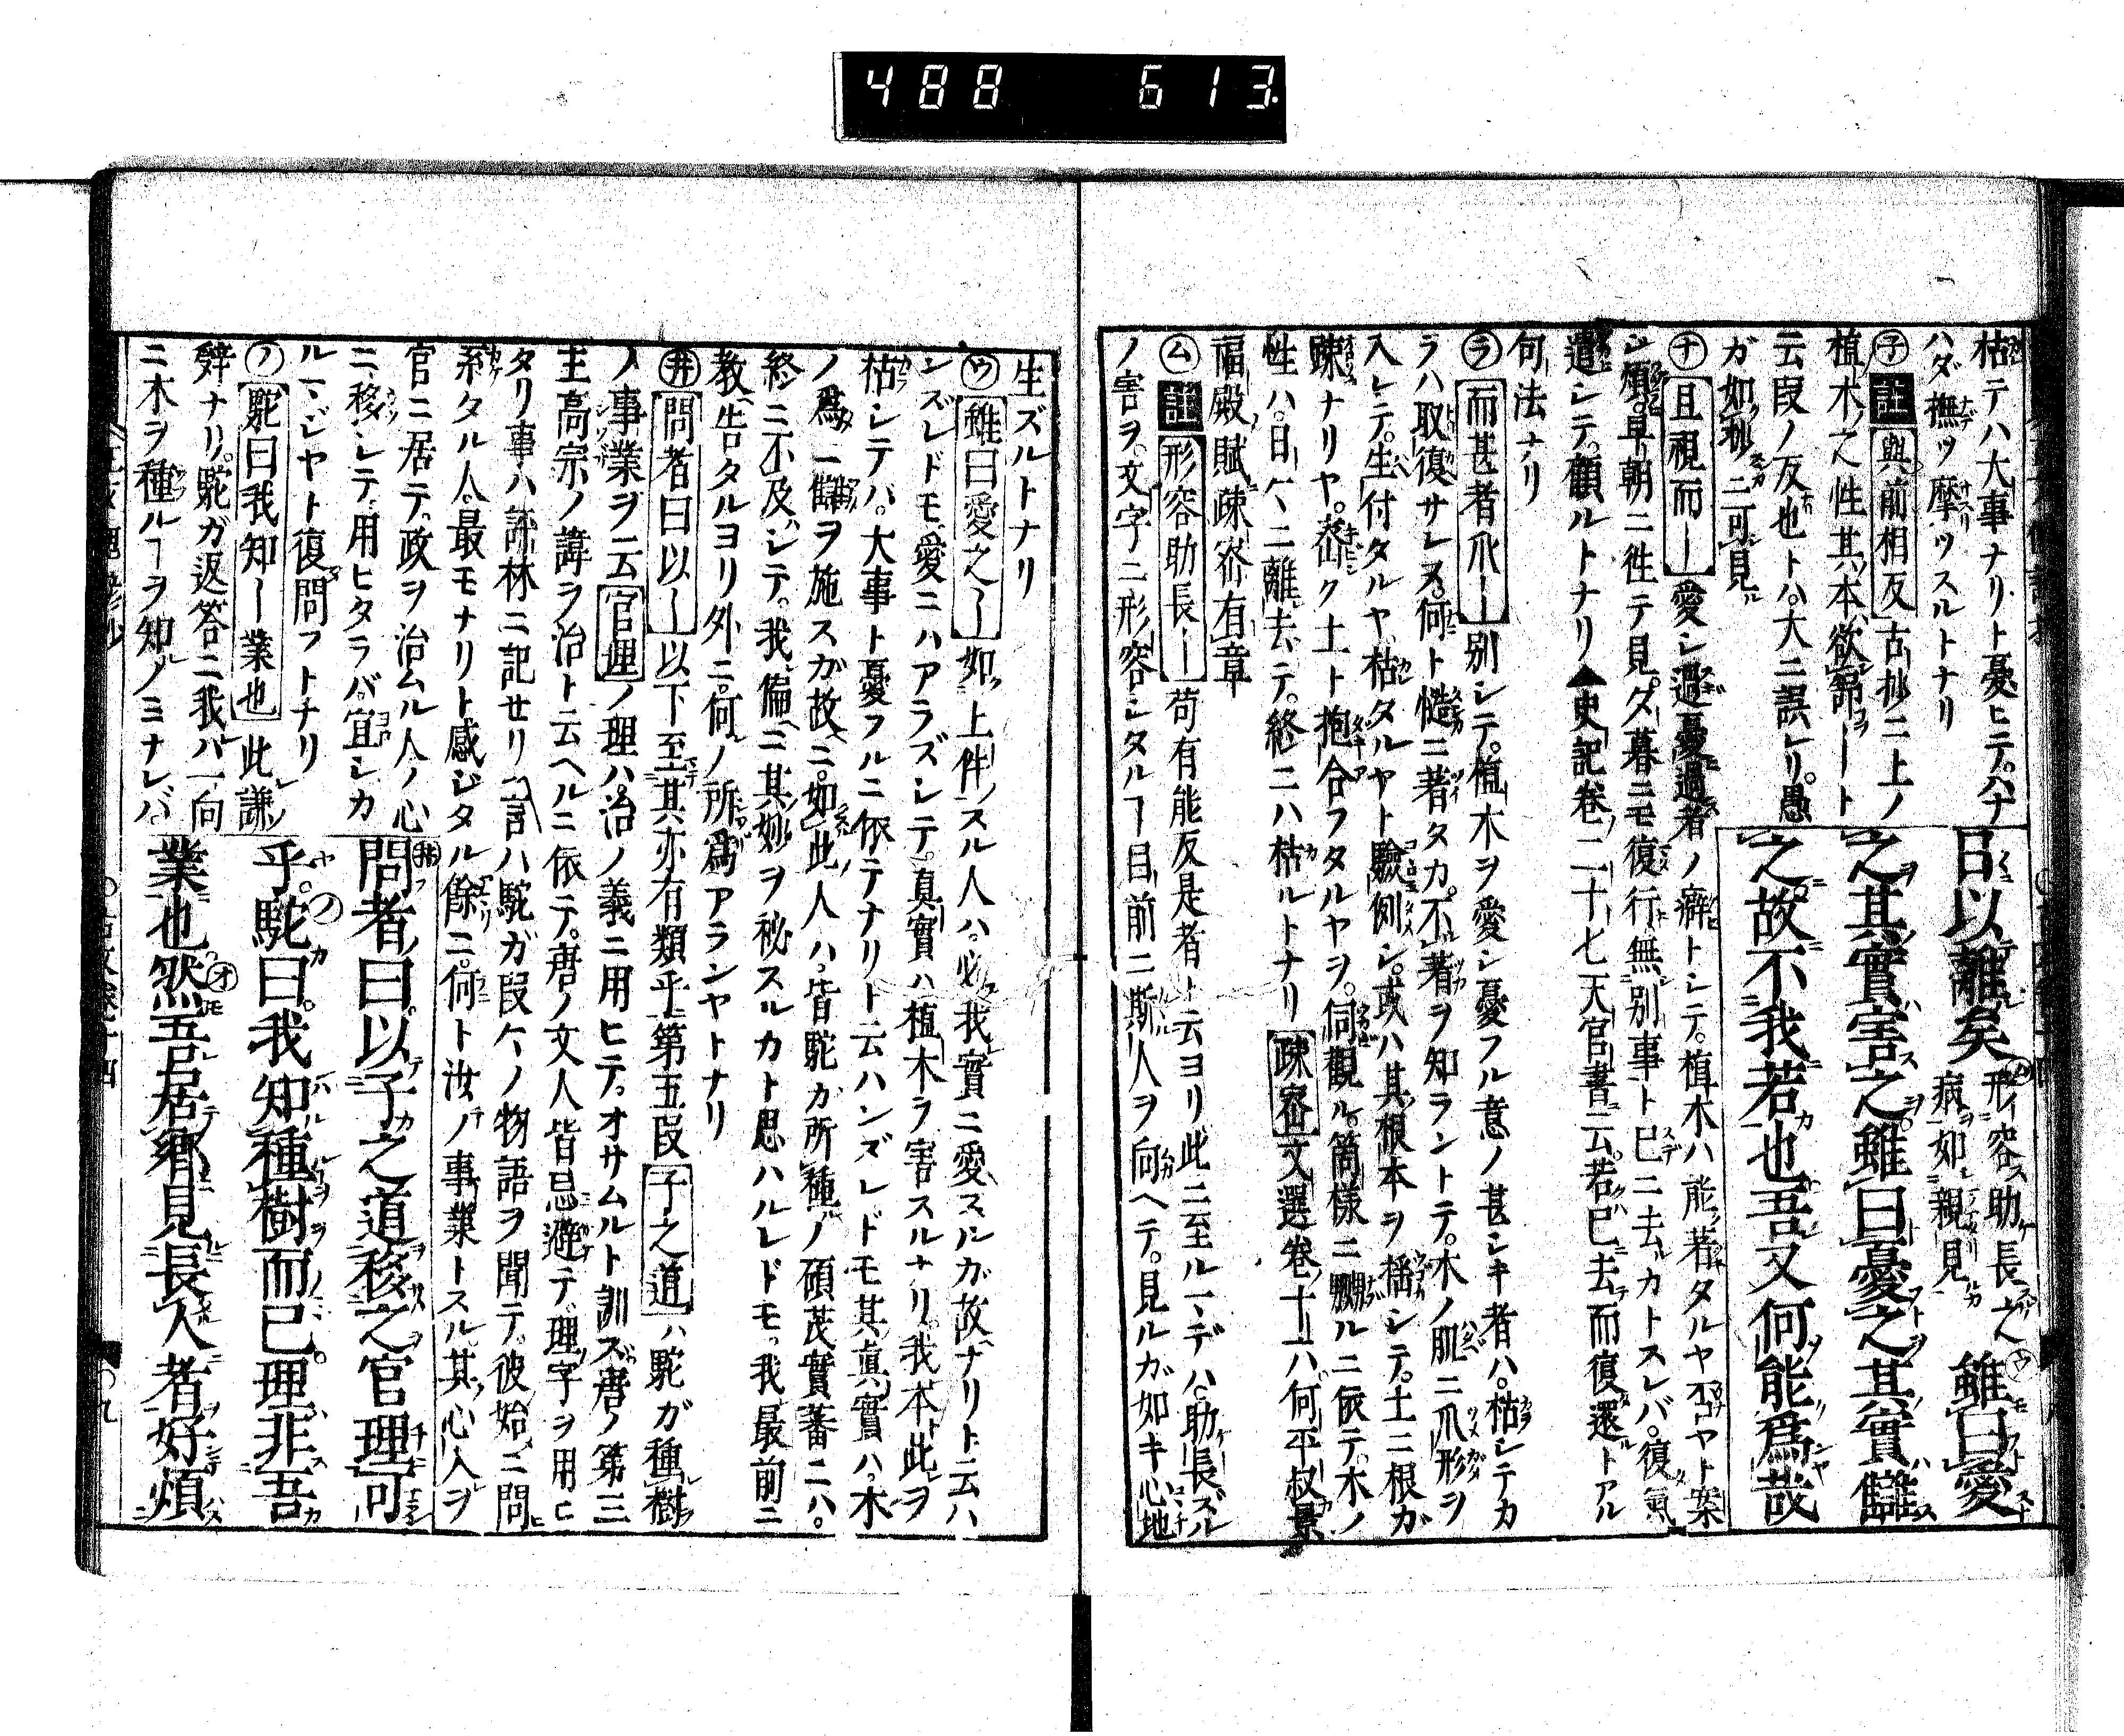 488 613.
枯テハ大事ナリト憂ヒテ。ハナ
ハダ撫ツ摩ツスルトナリ
㋧註與前相反古抄ニ上ノ
植木之性其本欲舒ートト
云段ノ反也トハ。大ニ誤レリ。愚
ガ如抄ニ可見
日以離矣形容助長之病如親見雖曰愛
之其實害之雖曰憂之其實讎
之故不我若也吾又何能爲哉
㋤且視而ー愛シ過憂過者ノ癖トシテ。植木ハ能著タルヤ否ヤト案
シ煩。早朝ニ徃テ見。夕暮ニモ復行。無別事ト已ニ去ルカトスレバ。復氣
遣シテ。顧ルトナリ▲史記卷二十七天官書ニ云。若已去而復還トアル
句法ナリ
㋶而甚者爪ー別シテ。植木ヲ愛シ憂フル意ノ甚シキ者ハ。枯シテカ
ラハ取復サレヌ。何ト慥ニ著タカ。不著ヲ知ラントテ。木ノ肌ニ爪形ヲ
入レテ。生付タルヤ枯タルヤト驗例シ。或ハ其根本ヲ搖シテ。土ニ根ガ
疎ナリヤ。密ク土ト抱合フタルヤヲ。伺觀ル。箇樣ニ嬲ルニ依テ。木ノ
性ハ。日々ニ離去テ。終ニハ枯ルトナリ疎密文選卷十一ハ何平叔景
福殿賦疎密有章
㋰註形容助長ー苟有能反是者ト云ヨリ此ニ至ルーデハ助長ズル
ノ害ヲ。文字ニ形容シタルー目前ニ斯人ヲ向ヘテ。見ルガ如キ心地
生ズルトナリ
㋒雖曰愛之ー如上件スル人ハ。必我實ニ愛スルガ故ナリト云ハ
ンズレドモ。愛ニハアラズシテ。真實ハ植木ヲ害スルナリ。我本此ヲ
枯シテハ。大事ト憂フルニ依テナリト云ハンズレドモ其真實ハ。木
ノ爲ニ讎ヲ施スガ故ニ。如此人ハ。皆駝ガ所種ノ碩茂實蕃ニハ。
終ニ不及シテ。我儕ニ其妙ヲ秘スルカト思ハルレドモ。我最前ニ
教告タルヨリ外ニ。何ノ所爲アランヤトナリ
㋼問者曰以ー以下至其亦有類乎第五段子之道ハ駝ガ種樹
ノ事業ヲ云官理ノ理ハ。治ノ義ニ用ヒテ。オサムルト訓ズ唐ノ第三
主高宗ノ諱ヲ治ト云ヘルニ依テ。唐ノ文人皆忌避テ。理字ヲ用ヒ
タリ事ハ評林ニ記せリ言ハ駝ガ段々ノ物語ヲ聞テ。彼始ニ問
系タル人。最モナリト感ジタル餘ニ。何ト汝ノ事業トスル其心入ヲ
官ニ居テ。政ヲ治ムル人ノ心
ニ移シテ。用ヒタラバ。宜シカ
ルージヤト復問フトナリ
㋨駝曰我知ー業也此謙ノ
辭ナリ。駝ガ返答ニ我ハ一向
ニ木ヲ種ルーヲ知ノミナレバ
問者曰。以子之道移之官理可
乎。駝曰。我知種樹而已。理非吾
業也然吾居鄕見長人者好煩